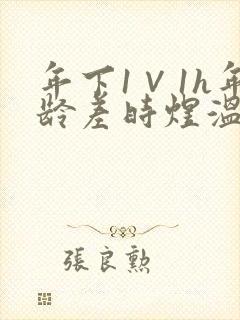 年下1V1h年
龄差時煌溫
張良勲